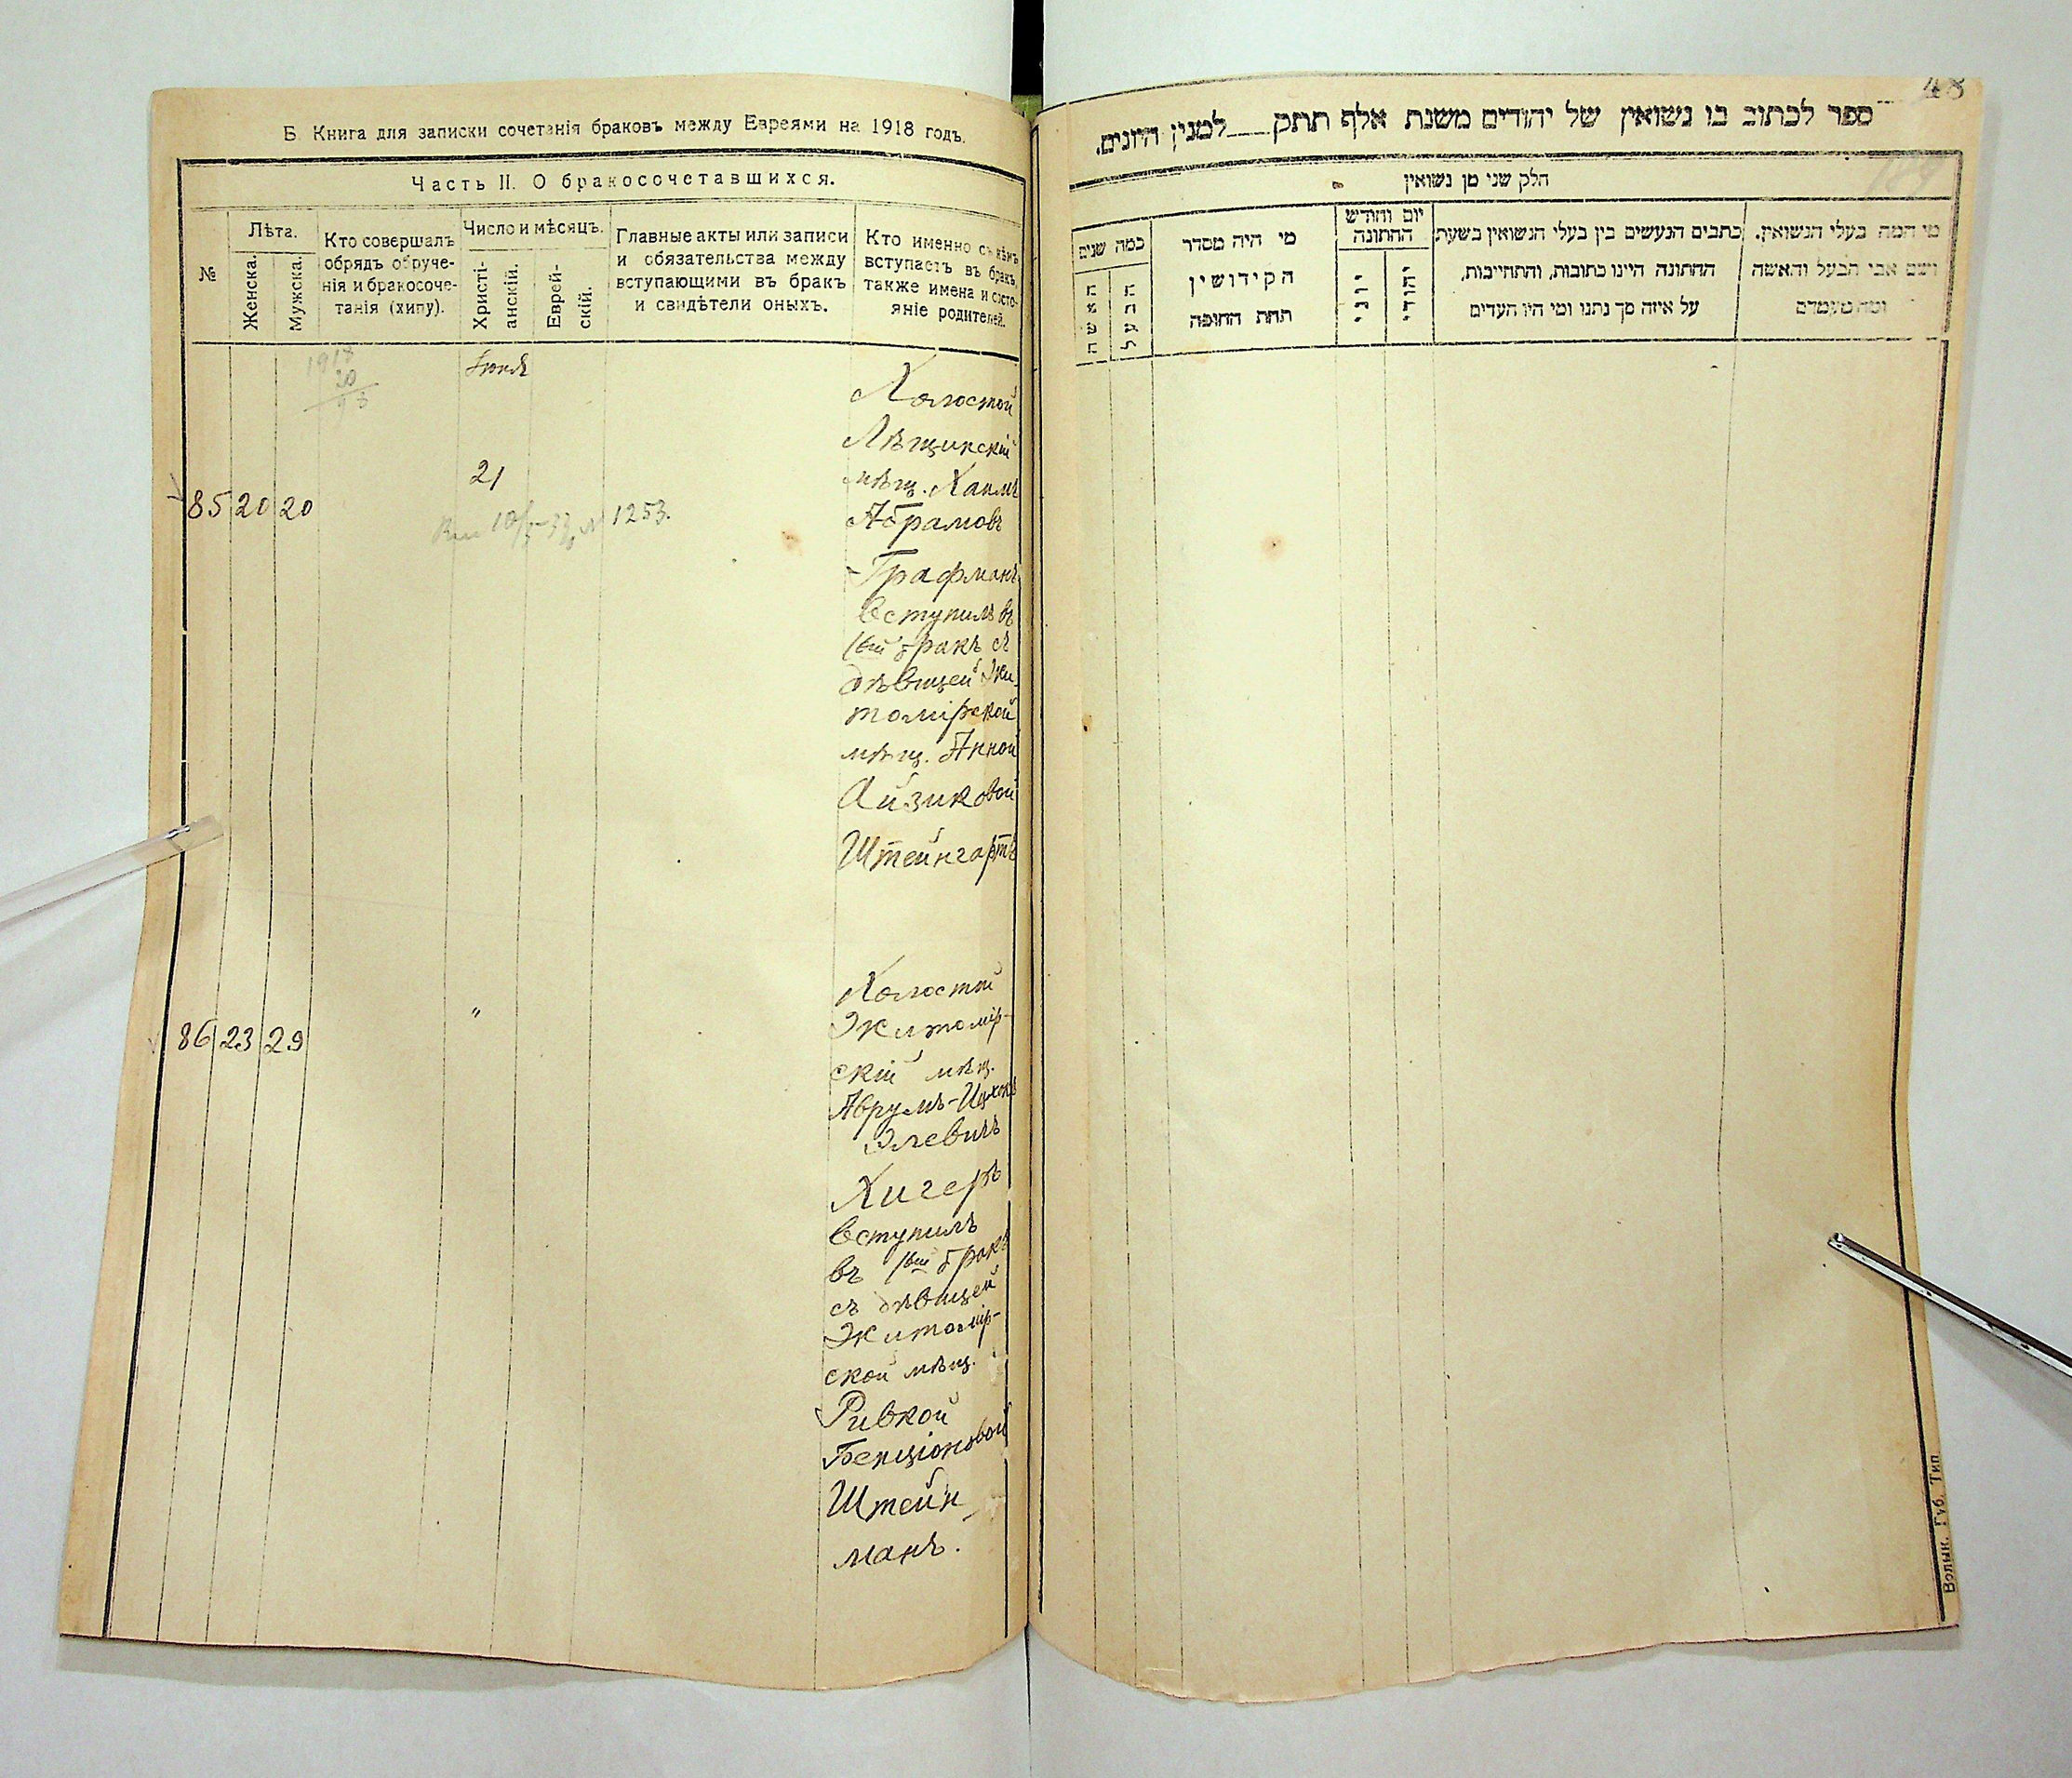 Б. Книга для записки сочетанія браковъ между Евреями на 1918 годъ.
Часть II. О бракосочетавшихся.
№
Лѣта.
Женска.
Мужска.
Кто совершалъ
обрядъ обруче-
нія и бракосоче-
танія (хипу).
Число и мѣсяцъ.
Христі-
анскій.
Еврей-
скій.
Главные акты или записи
и обязательства между
вступающими въ бракъ
и свидѣтели оныхъ.
Кто именно съ кѣмъ
вступаетъ въ бракъ,
также имена и состо-
яніе родителей.
1918
20
98
85 20 20
21
1253.
Холостой
Лѣщинскій
мѣщ. Хаимъ
Абрамовъ
Графманъ
вступилъ въ
1ый бракъ съ
дѣвицей Жи-
томірской
мѣщ. Анной
Айзиковой
Штейнгартъ
86 23 29
"
Холостой
Житомір-
скій мѣщ.
Аврумъ-Ицхокъ
Элевичъ
Хигеръ
вступилъ
въ 1ый бракъ
съ дѣвицей
Житомір-
ской мѣщ.
Ривкой
Бенціоновой
Штейн
манъ.
48
ספר לכתוב בו נשואין של יהודים משנת אלף תתק למנין היונים.
חלק שני מן נשואין
כמה שנים
האשה
הבעל
מי היה מסדר
הקידושין
תחת החופה
יום וחודש
החתונה
יוני
יהודי
כתבים הנעשים בין בעלי הנשואין בשעת
החתונה היינו כתובות, והתחייבות,
על איזה סך נתנו ומי היו העדים
מי המה בעלי הנשואין.
ושם אבי הבעל והאשה
ומה מעמדם
Волын. Губ. Тип